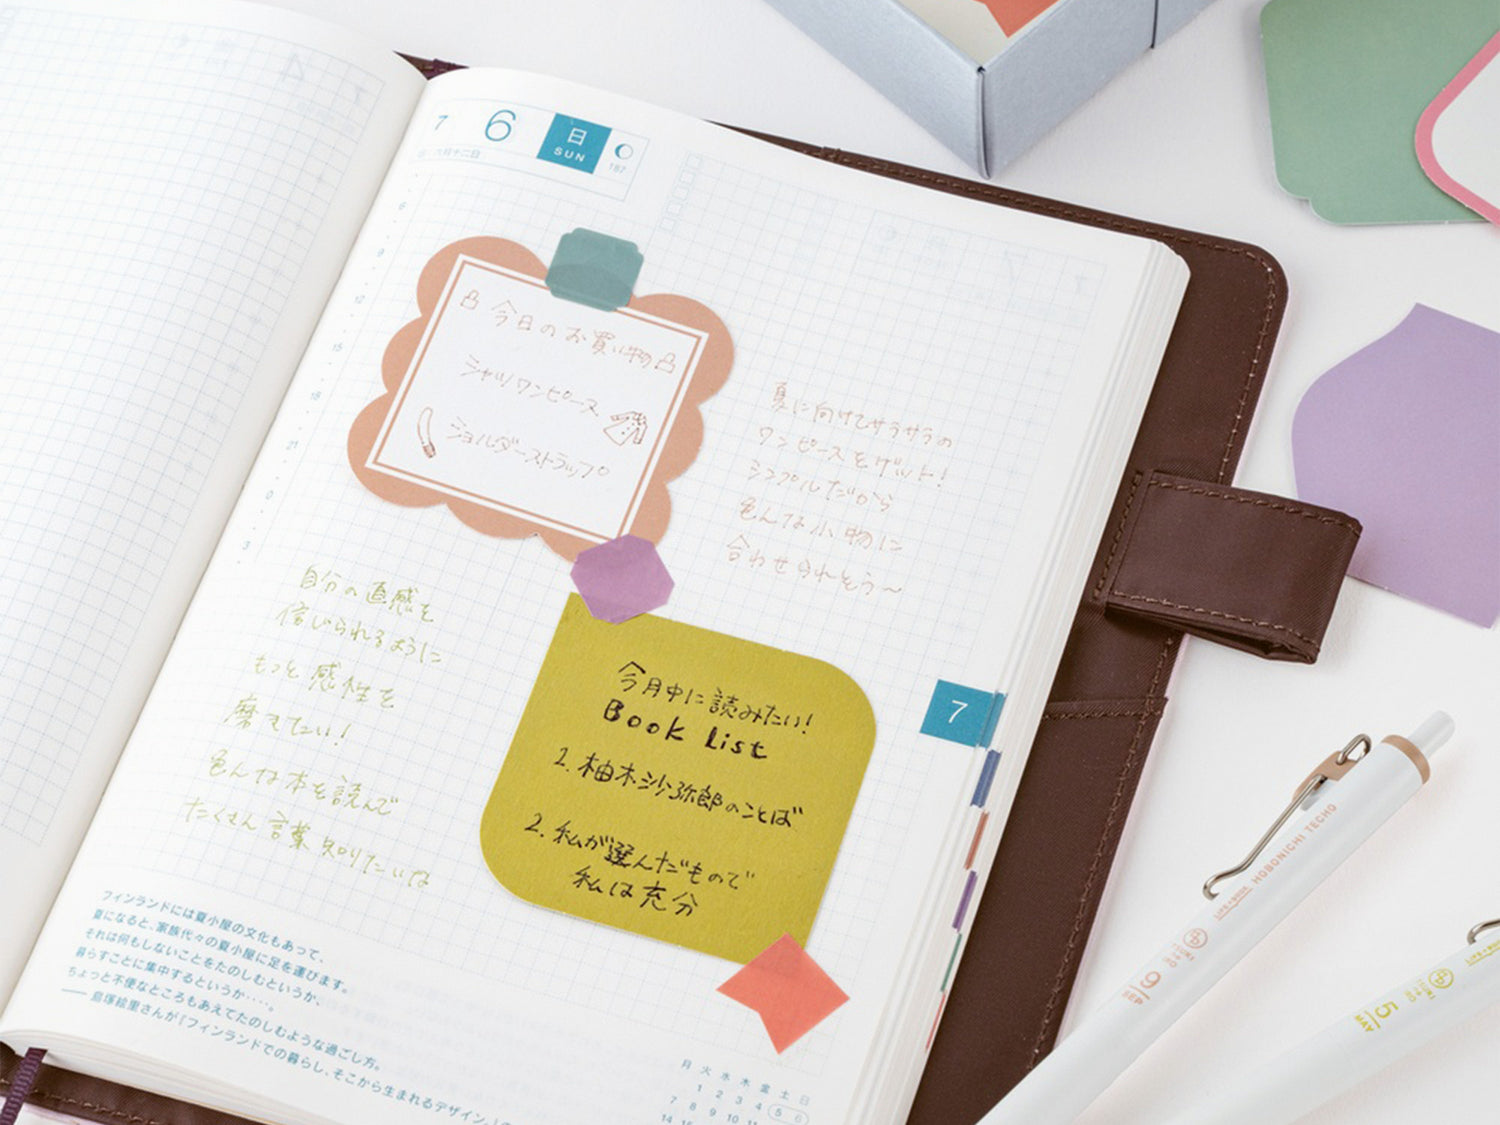 7 6 日 SUN
187
6
9
12
15
18
21
0
3
今日のお買い物
シャツワンピース
ショルダーストラップ
夏に向けてサラサラの
ワンピースをゲット!
シンプルだから
色んな小物に
合わせられそう〜
自分の直感を
信じられるように
もっと感性を
磨きたい!
色んな本を読んで
たくさん言葉知りたいな
今月中に読みたい!
Book List
1. 柚木沙弥郎のことば
2. 私が選んだもので
私は充分
7
フィンランドには夏小屋の文化もあって、
夏になると、家族代々の夏小屋に足を運びます。
それは何もしないことをたのしむというか、
暮らすことに集中するというか‥‥。
ちょっと不便なところもあえてたのしむような過ごし方。
── 島塚絵里さんが『フィンランドでの暮らし、そこから生まれるデザイン。』の
月 火 水 木 金 土 日
1 2 3 4 5 6
7 8 9 10 11
14
LIFE BOOK HOBONICHI TECHO
SEP 9
MAY 5